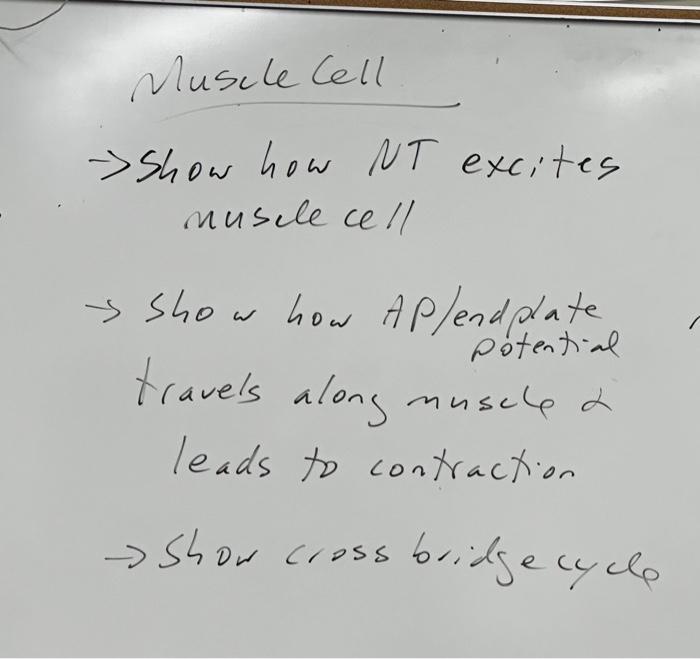 Muscle Cell
→ Show how NT excites
muscle cell
→ Show how AP/endplate
potential
travels along muscle &
leads to contraction
→ Show cross bridge cycle